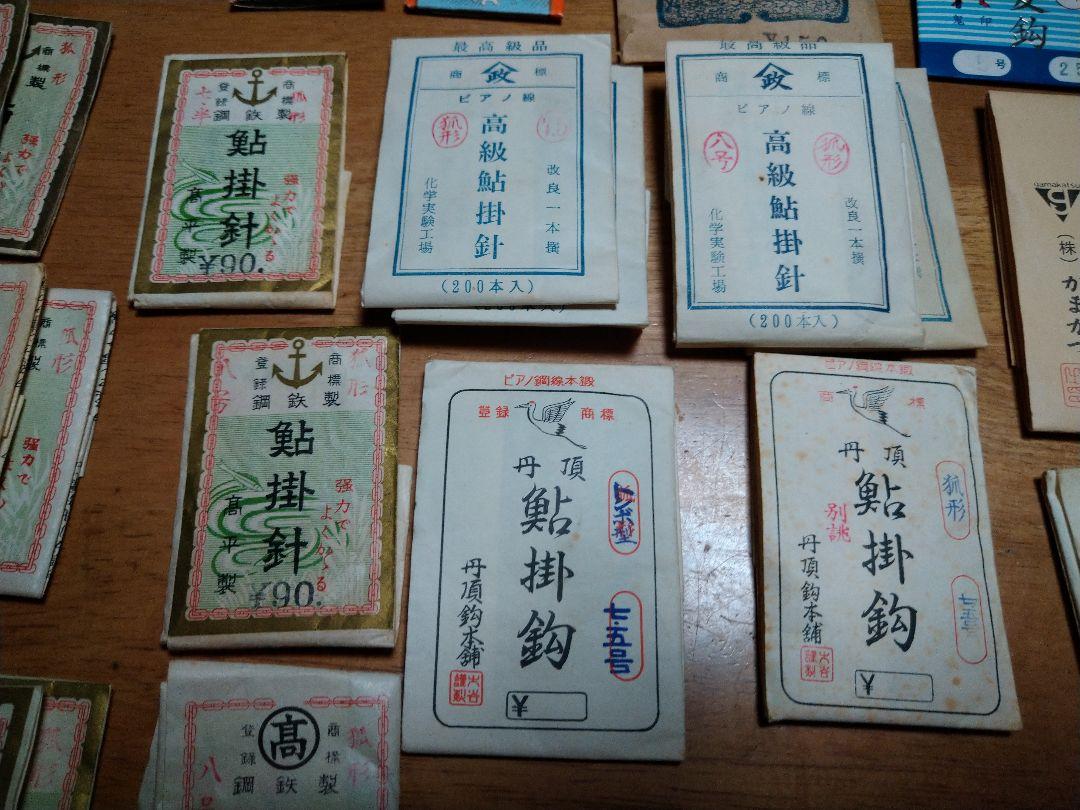 登録 商標
鋼鉄製
七・半
狐形
鮎掛針
強力で
よくかゝる
高平製
¥90.
最高級品
商 政 標
ピアノ線
狐形
高級鮎掛針
改良一本撰
化学実験工場
(200本入)
最高級品
商 政 標
ピアノ線
八号
狐形
高級鮎掛針
改良一本撰
化学実験工場
(200本入)
gamakatsu
(株)がまかつ
号
登録 商標
鋼鉄製
狐形
鮎掛針
強力で
よくかゝる
高平製
¥90.
ピアノ鋼線本鍛
登録 商標
丹頂
鮎掛鈎
七・五号
丹頂鈎本舗
¥
ピアノ鋼線本鍛
商標
丹頂
鮎掛鈎
狐形
別誂
丹頂鈎本舗
¥
登録 高 商標
鋼鉄製
狐形
八
狐形
商標
製
強力で
狐形
商標
製
強力で